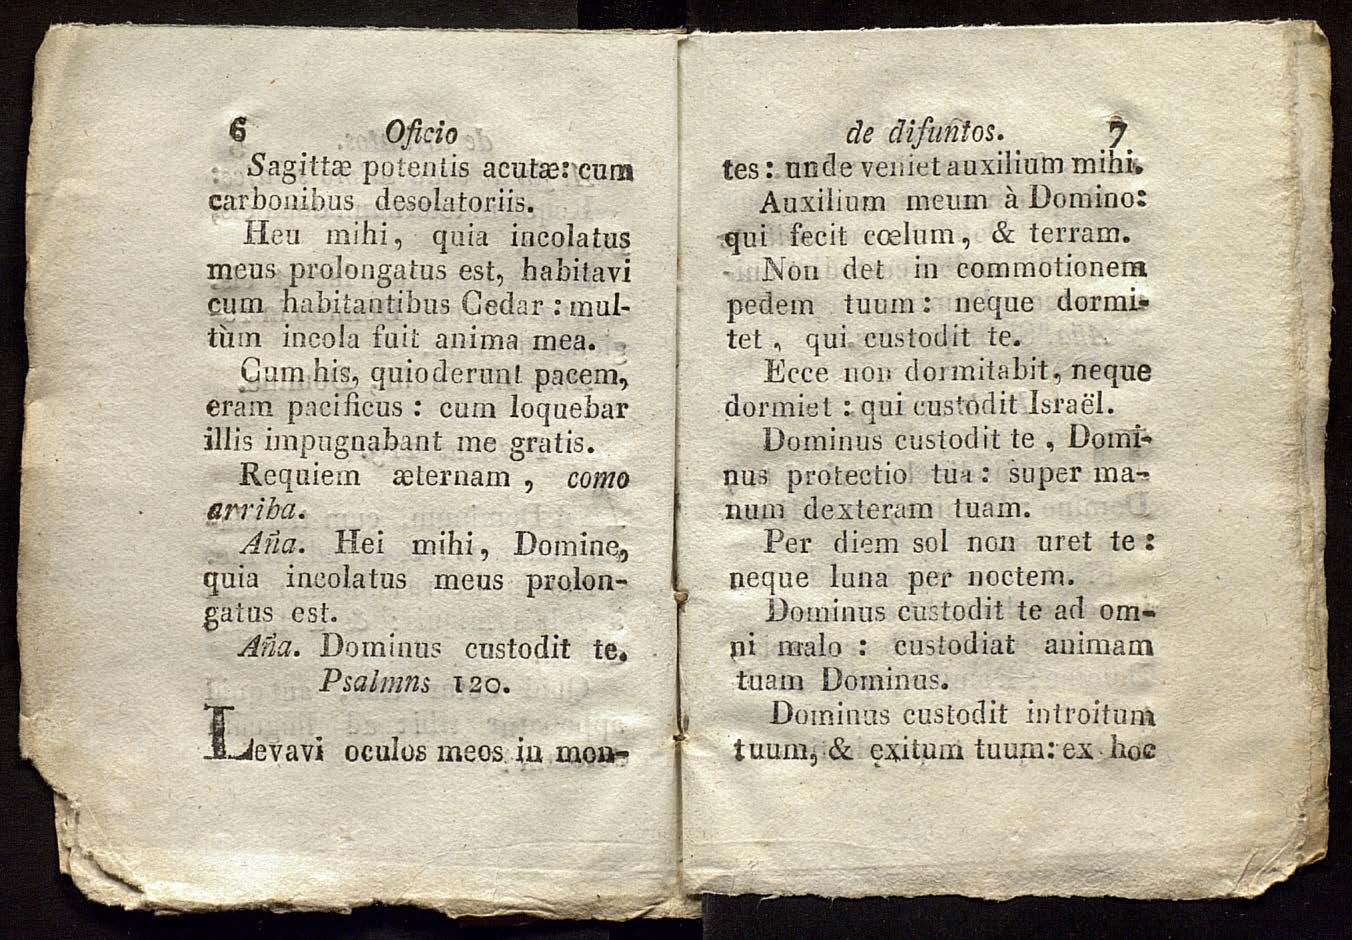 6 Oficio
Sagittæ potentis acutæ: cum
carbonibus desolatoriis.
Heu mihi, quia incolatus
meus prolongatus est, habitavi
cum habitantibus Cedar : mul-
tùm incola fuit anima mea.
Cum his, qui oderunt pacem,
eram pacificus : cum loquebar
illis impugnabant me gratis.
Requiem æternam , como
arriba.
Aña. Hei mihi, Domine,
quia incolatus meus prolon-
gatus est.
Aña. Dominus custodit te.
Psalmns 120.
Levavi oculos meos in mon-
de difuntos. 7
tes : unde veniet auxilium mihi.
Auxilium meum à Domino:
qui fecit cœlum, & terram.
Non det in commotionem
pedem tuum : neque dormi-
tet , qui custodit te.
Ecce non dormitabit, neque
dormiet : qui custodit Israël.
Dominus custodit te , Domi-
nus protectio tua : super ma-
num dexteram tuam.
Per diem sol non uret te :
neque luna per noctem.
Dominus custodit te ad om-
ni malo : custodiat animam
tuam Dominus.
Dominus custodit introitum
tuum, & exitum tuum: ex hoc